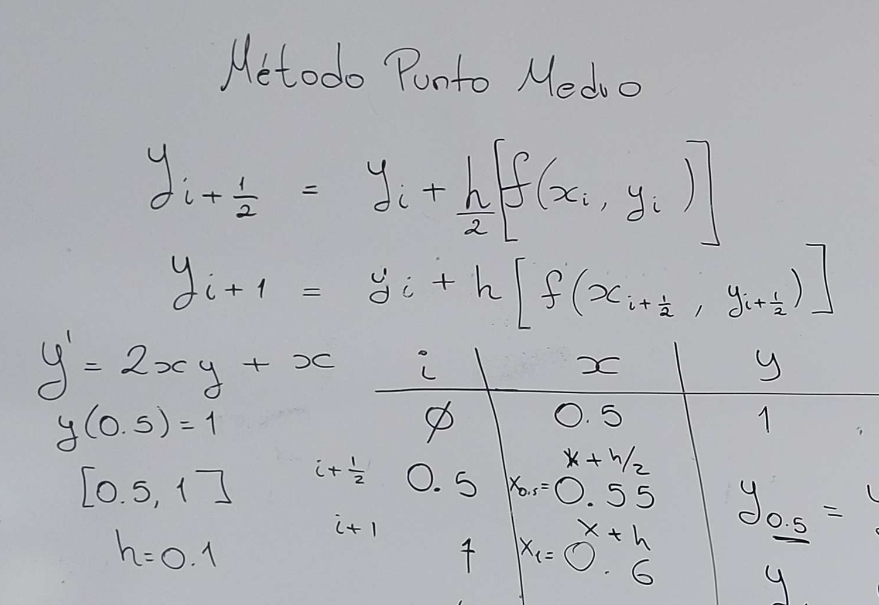 Método Punto Medio
y_{i+1/2} = y_i + h/2 [f(x_i, y_i)]
y_{i+1} = y_i + h [f(x_{i+1/2}, y_{i+1/2})]
y' = 2xy + x
y(0.5) = 1
[0.5, 1]
h=0.1
i x y
Ø 0.5 1
x + h/2
i+1/2 0.5 x_{0.5}=0.55 y_{0.5} =
x + h
i+1 1 x_1=0.6 y